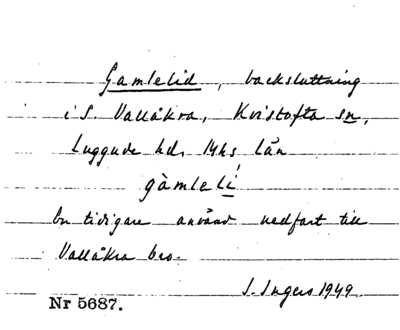 Gamlelid, backsluttning
i S. Vallåkra, Kvistofta sn,
Luggude hd, Mhs län
gàmlelí
En tidigare använd nedfart till
Vallåkra bro.
I. Ingers 1949
Nr 5687.